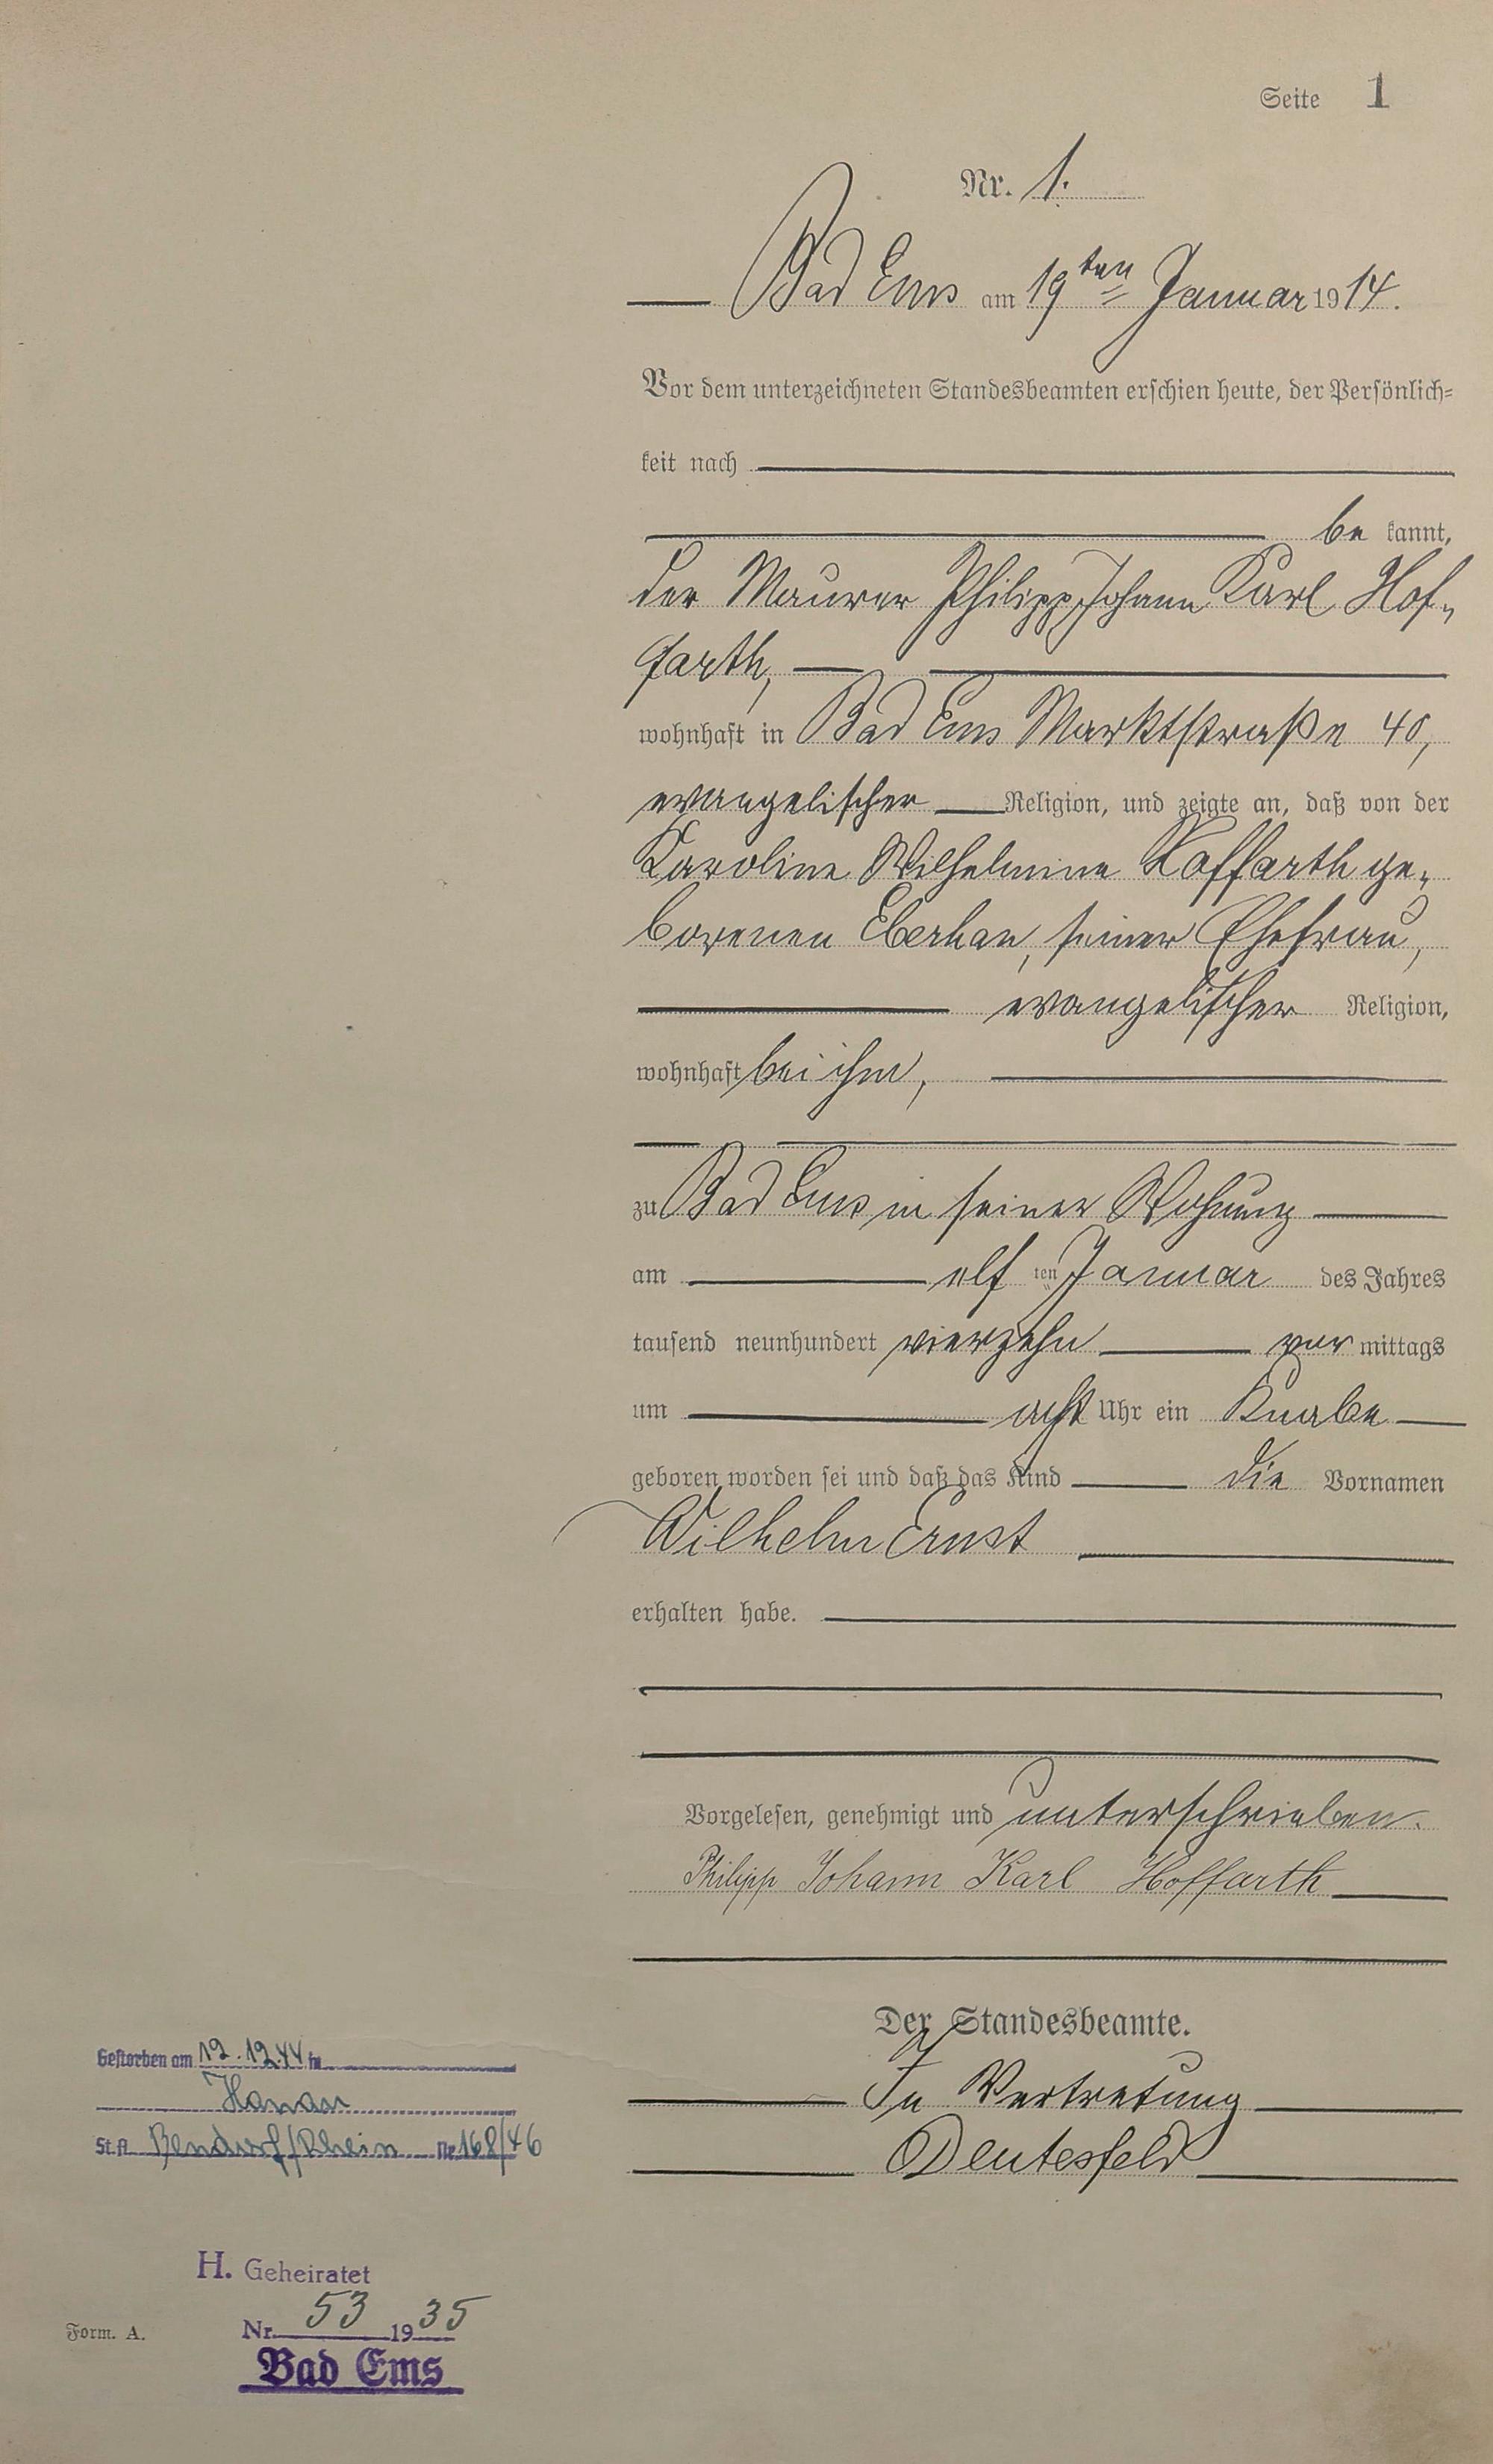 Seite 1
Nr. 1.
Bad Ems am 19ten Januar 1914.
Vor dem unterzeichneten Standesbeamten erschien heute, der Persönlich=
keit nach
be kannt,
der Maurer Philipp Johann Karl Hof-
farth,
wohnhaft in Bad Ems Marktstraße 40,
evangelischer Religion, und zeigte an, daß von der
Karoline Wilhelmine Hoffarth ge-
borenen, seiner Ehefrau,
evangelischer Religion,
wohnhaft bei ihm,
zu Bad Ems in seiner Wohnung
am elf ten Januar des Jahres
tausend neunhundert vierzehn vor mittags
um acht Uhr ein Knabe
geboren worden sei und daß das Kind die Vornamen
Wilhelm Ernst
erhalten habe.
Vorgelesen, genehmigt und unterschrieben.
Philipp Johann Karl Hoffarth
Der Standesbeamte.
In Vertretung
Deutesfeld
Gestorben am 12.1944 in
Hanau
St.A. Bendorf/Rhein Nr. 168/46
H. Geheiratet
Nr. 53 1935
Bad Ems
Form. A.